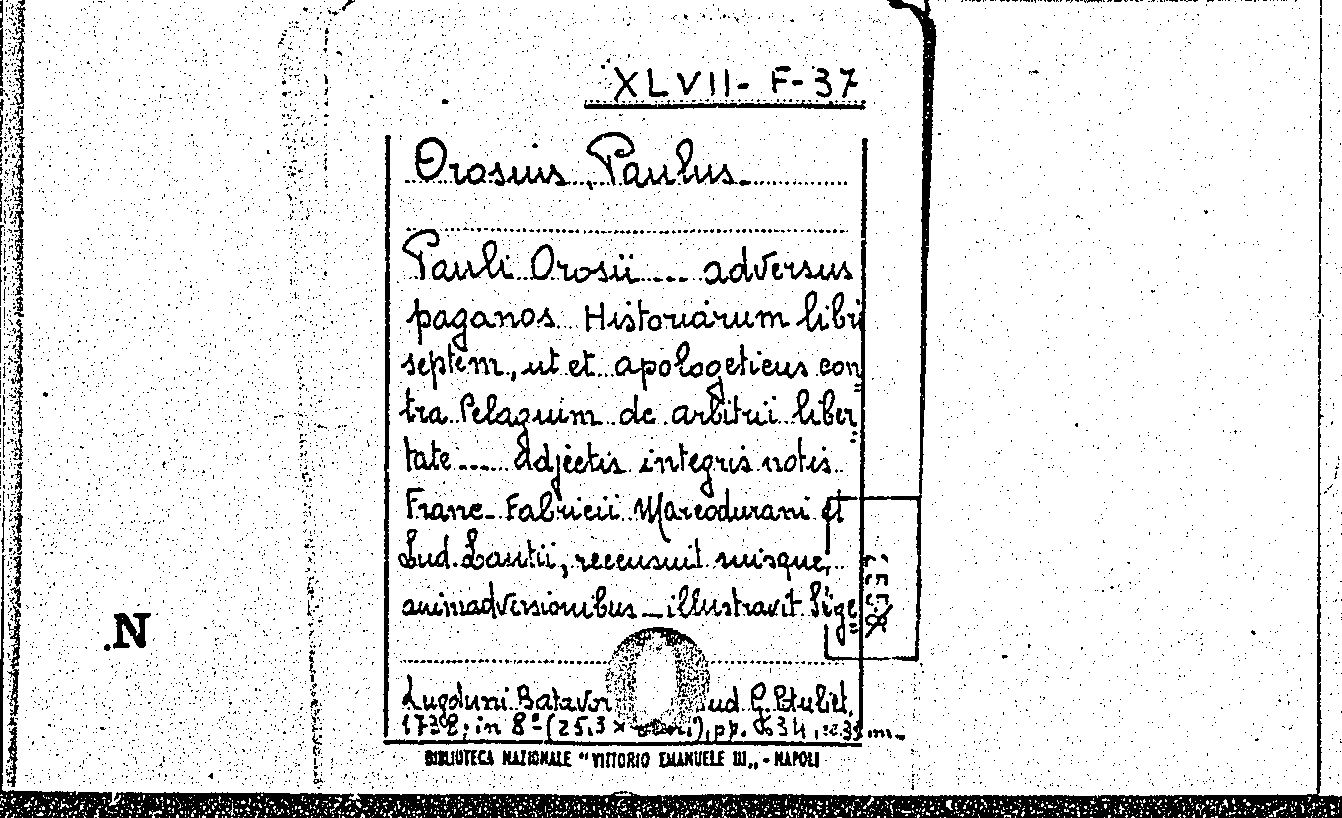 XLVII - F - 37
Orosius, Paulus.
Pauli Orosii .... adversus
paganos Historiarum libri
septem, ut et apologeticus con=
tra Pelagium de arbitrii liber=
tate .... adjectis integris notis
Franc. Fabricii Marcodurani et
Lud. Lautii, recensuit suisque
animadversionibus illustravit Sige=
.N
Lugduni Batavor
1738; in 8º (25,3 x pp. 634
BIBLIOTECA NAZIONALE "VITTORIO EMANUELE III„ - NAPOLI